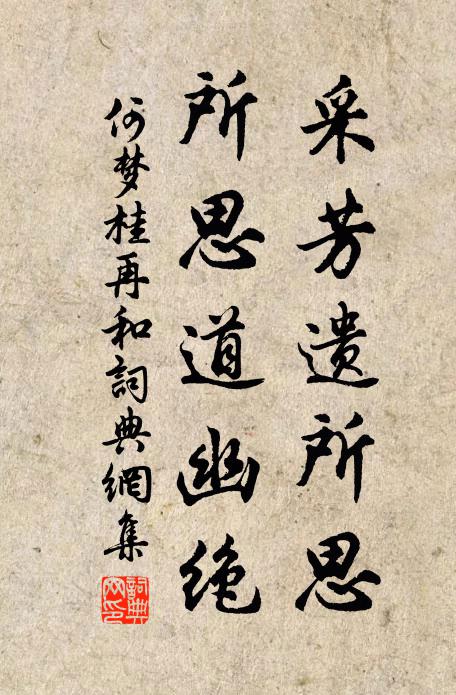 采芳遗所思
所思道幽绝
何梦桂再和詞典網集
詞典
网印